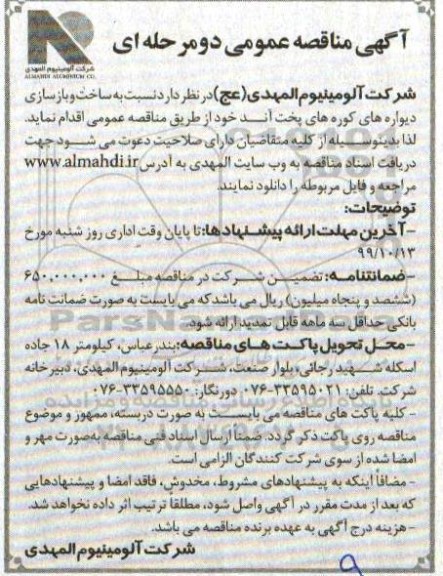 آگهی مناقصه عمومی دومرحله ای
شرکت آلومینیوم المهدی
ALMAHDI ALUMINIUM CO.
شرکت آلومینیوم المهدی (عج) در نظر دارد نسبت به ساخت و بازسازی
دیواره های کوره های پخت آند خود از طریق مناقصه عمومی اقدام نماید.
لذا بدینوسیله از کلیه متقاضیان دارای صلاحیت دعوت می شود جهت
دریافت اسناد مناقصه به وب سایت المهدی به آدرس www.almahdi.ir
مراجعه و فایل مربوطه را دانلود نمایند.
توضیحات:
-آخرین مهلت ارائه پیشنهادها: تا پایان وقت اداری روز شنبه مورخ
۹۹/۱۰/۱۳
-ضمانتنامه: تضمین شرکت در مناقصه مبلغ ۶۵۰,۰۰۰,۰۰۰
(ششصد و پنجاه میلیون) ریال می باشد که می بایست به صورت ضمانت نامه
بانکی حداقل سه ماهه قابل تمدید ارائه شود.
-محل تحویل پاکت های مناقصه: بندرعباس، کیلومتر ۱۸ جاده
اسکله شهید رجائی، بلوار صنعت، شرکت آلومینیوم المهدی، دبیرخانه
شرکت. تلفن: ۳۳۵۹۵۰۲۱-۰۷۶ دورنگار: ۳۳۵۹۵۵۵۰-۰۷۶
- کلیه پاکت های مناقصه می بایست به صورت دربسته، ممهوز و موضوع
مناقصه روی پاکت ذکر گردد. ضمناً ارسال اسناد فنی مناقصه به صورت مهر و
امضا شده از سوی شرکت کنندگان الزامی است.
- مضافاً اینکه به پیشنهادهای مشروط، مخدوش، فاقد امضا و پیشنهادهایی
که بعد از مدت مقرر در آگهی واصل شود، مطلقاً ترتیب اثر داده نخواهد شد.
- هزینه درج آگهی به عهده برنده مناقصه می باشد.
شرکت آلومینیوم المهدی
۹